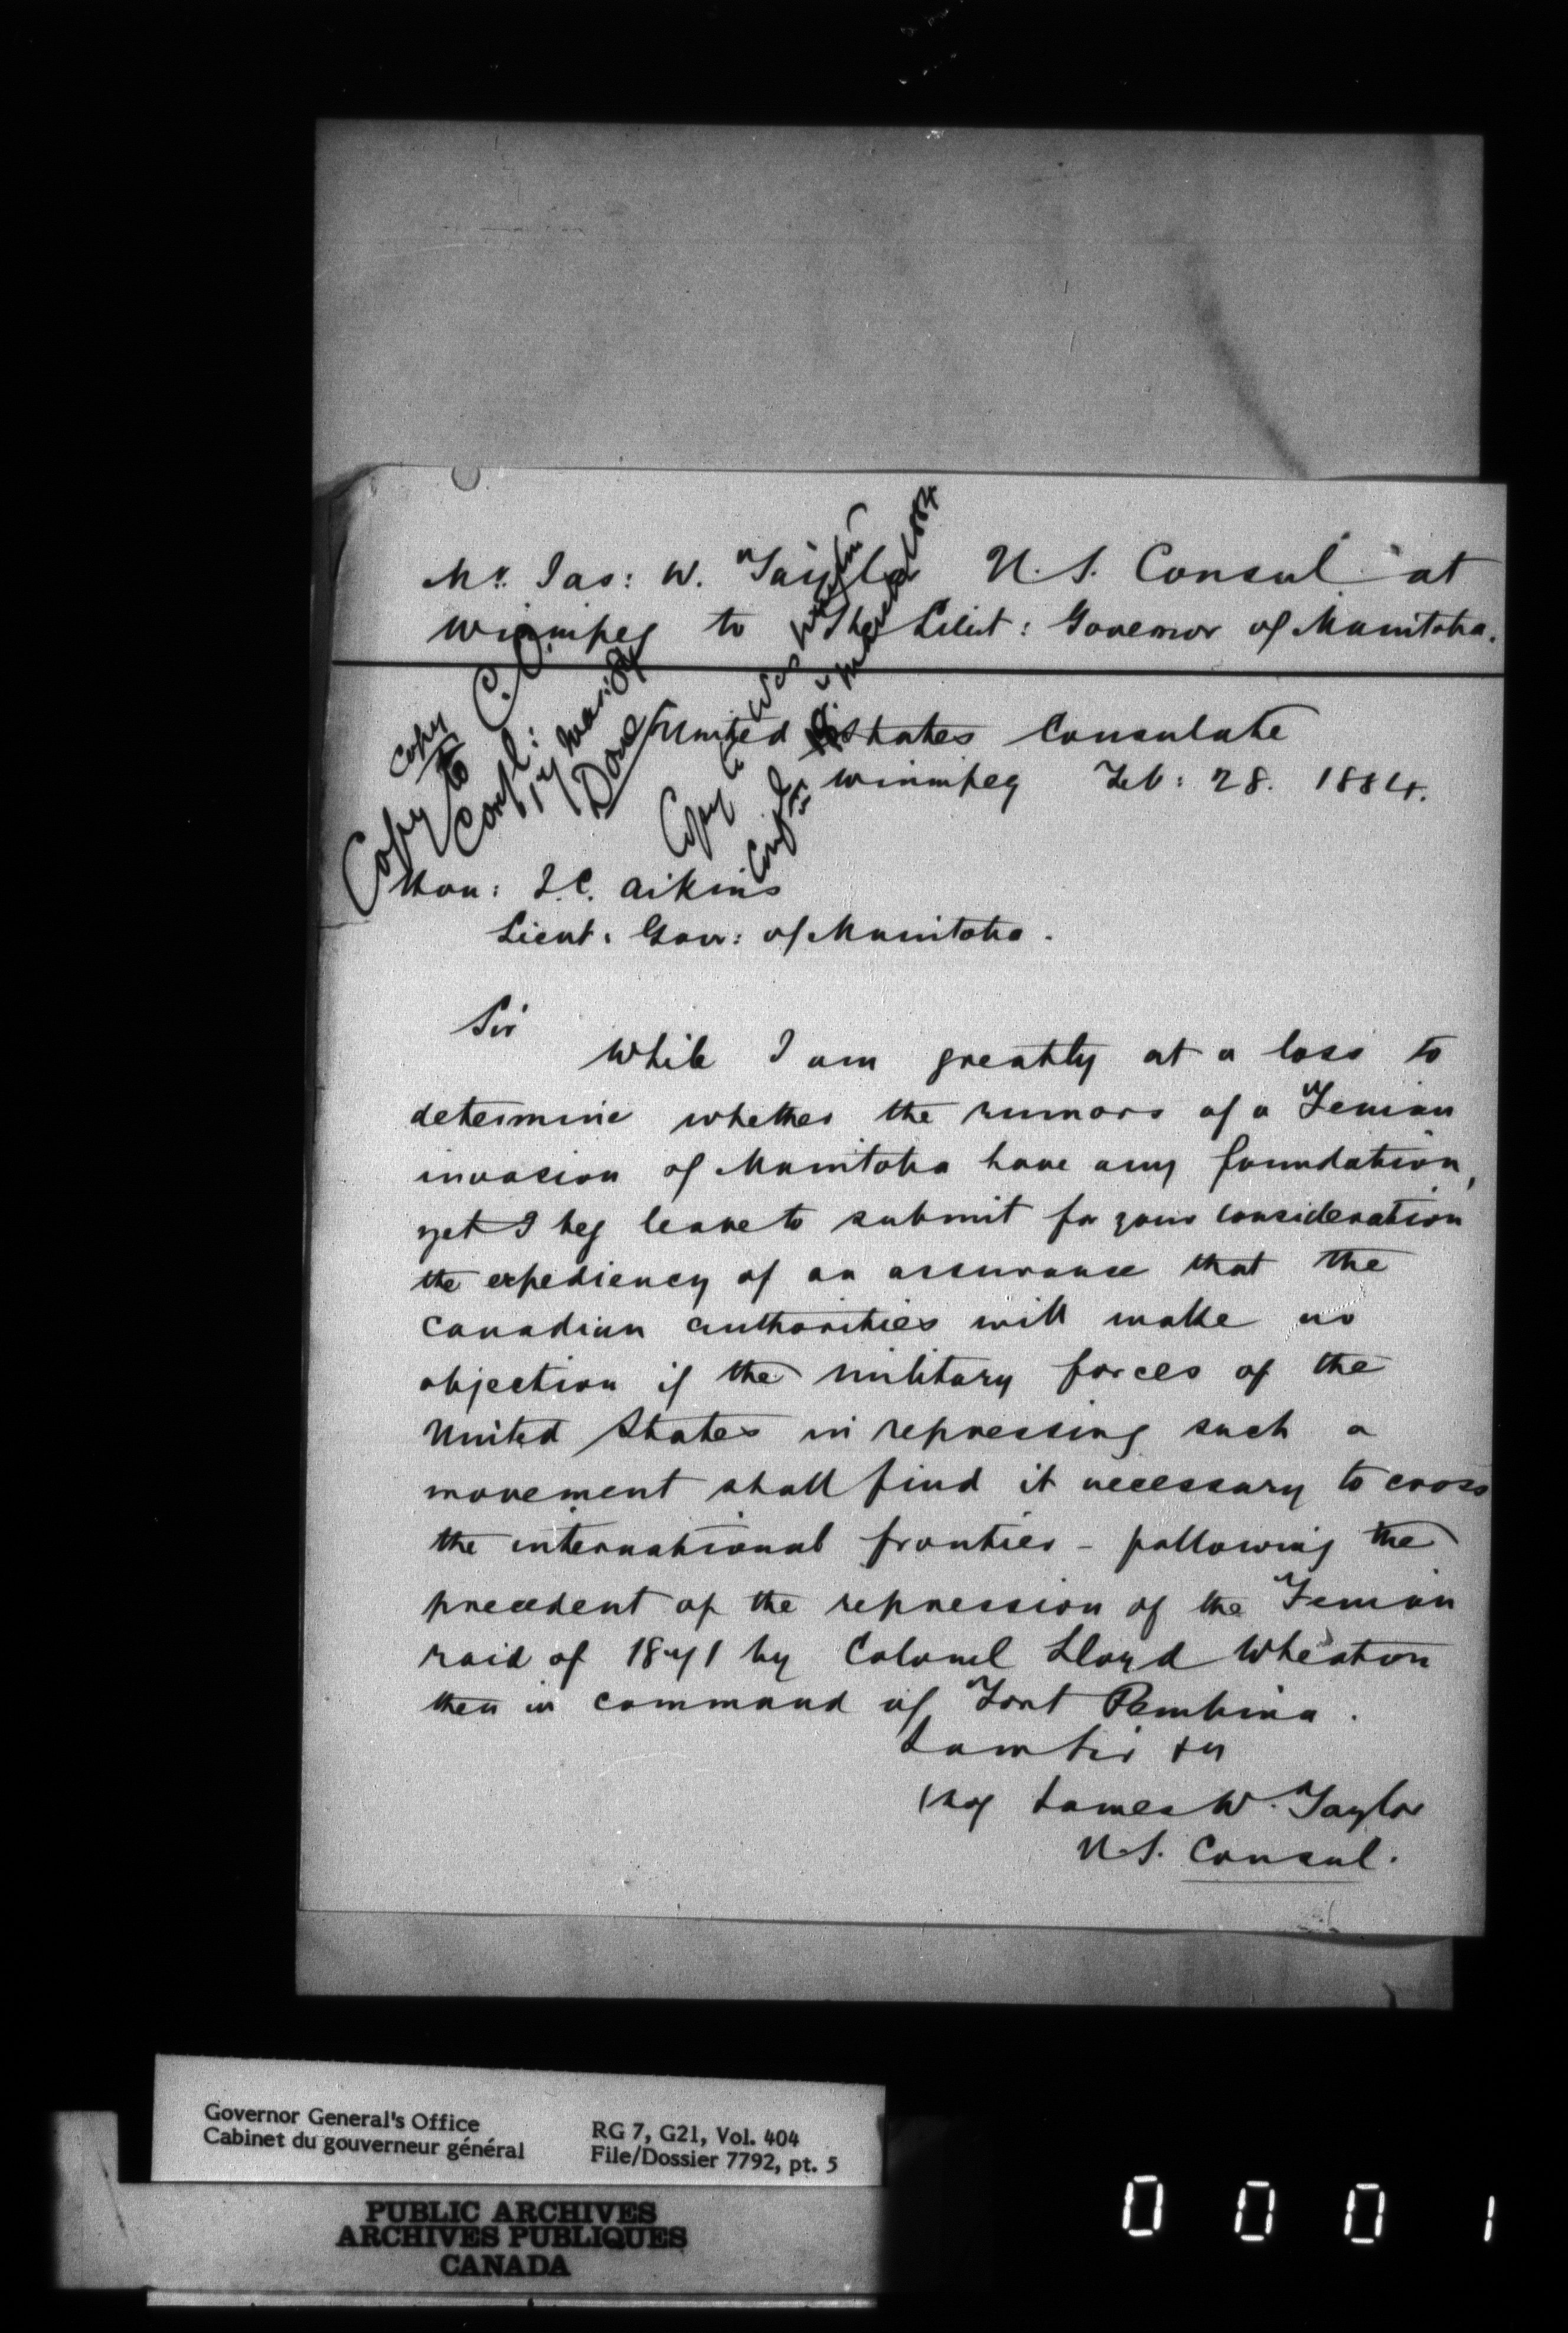 Mr. Jas: W. Taylor U.S. Consul at
Winnipeg to The Lieut: Governor of Manitoba.
Copy
Copy to C.O.
Confl:
17 March 84
Done
Copy to Washn
Confl
March 1884
United States Consulate
Winnipeg Feb: 28. 1884.
Hon: J.C. Aikins
Lieut: Gov: of Manitoba.
Sir
While I am greatly at a loss to
determine whether the rumors of a Fenian
invasion of Manitoba have any foundation,
yet I beg leave to submit for your consideration
the expediency of an assurance that the
Canadian authorities will make no
objection if the military forces of the
United States in repressing such a
movement shall find it necessary to cross
the international frontier - following the
precedent of the repression of the Fenian
raid of 1871 by Colonel Lloyd Wheaton
then in command of Fort Pembina.
I am Sir &c
(sg James W. Taylor
U.S. Consul.
Governor General's Office
Cabinet du gouverneur général
RG 7, G21, Vol. 404
File/Dossier 7792, pt. 5
PUBLIC ARCHIVES
ARCHIVES PUBLIQUES
CANADA
0001